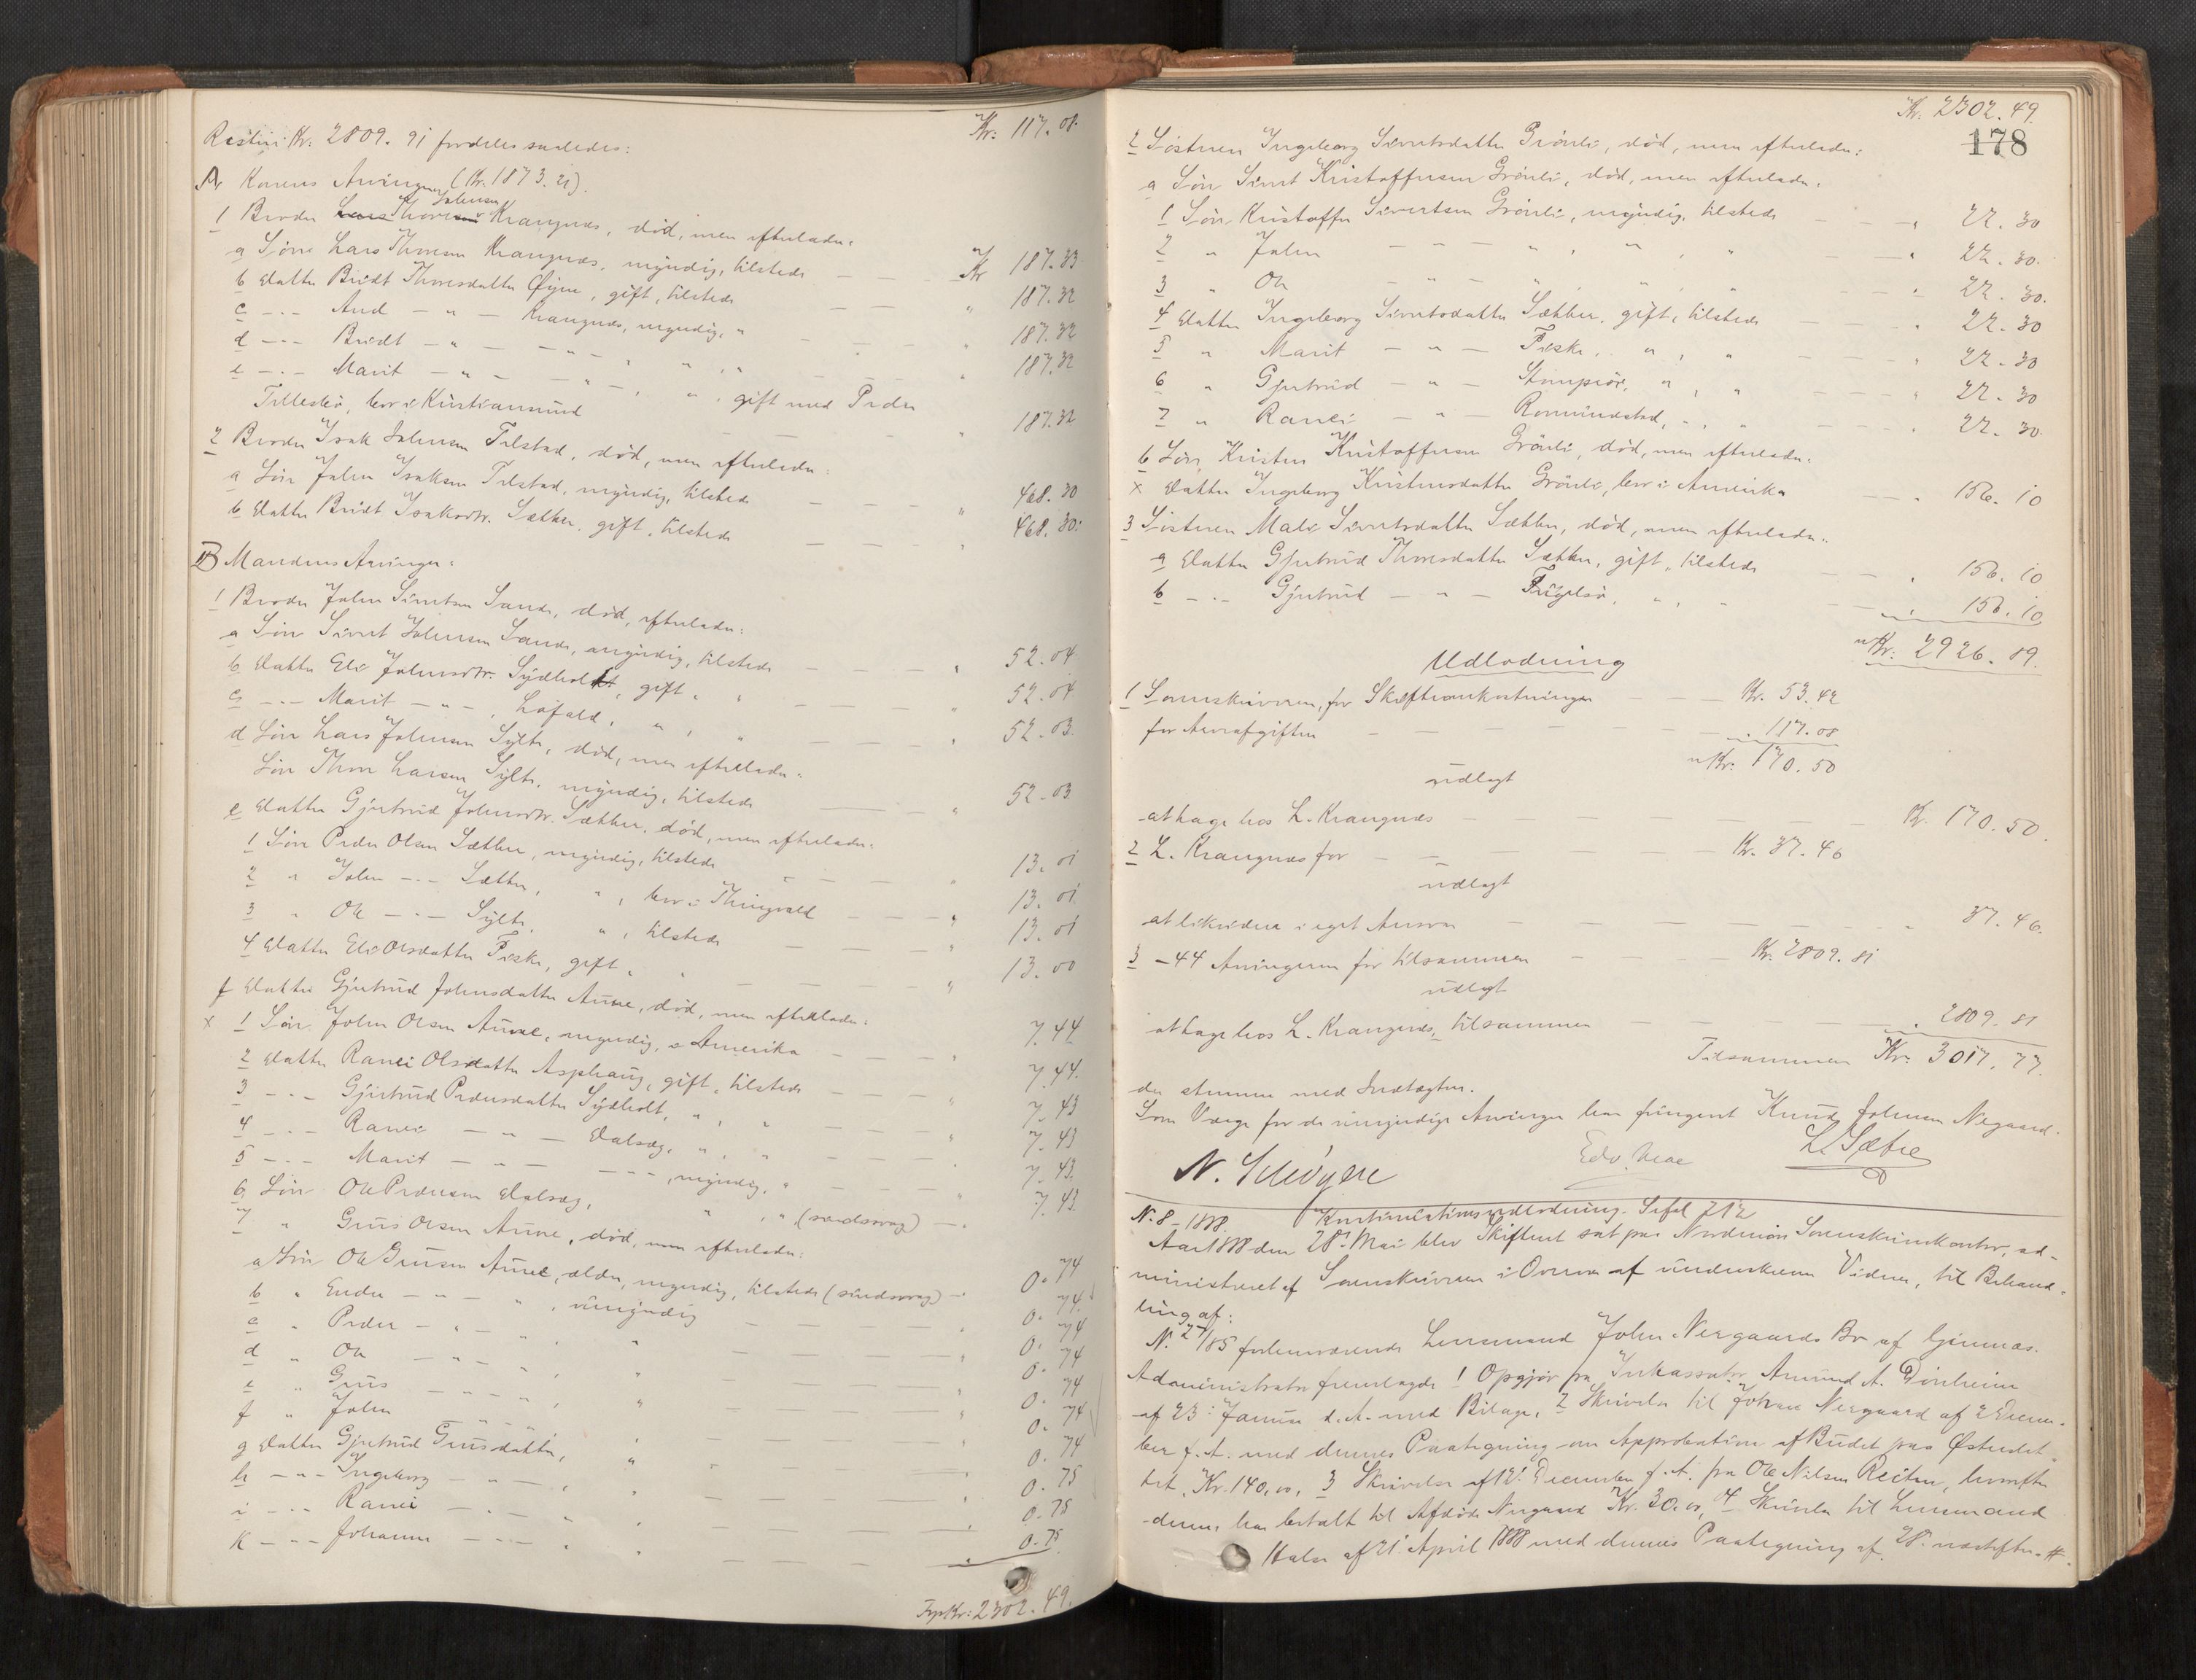 Kr: 117.08.
Resten: Kr: 2809.91 fordeles saaledes:
A Konens Arvinger (Kr. 1873.21).
1 Broder Thore Johnsen Krangnæs, død, men efterlader:
a Søn Lars Thoresen Krangnæs, myndig, tilstede — — Kr 187.33
b Datter Bridt Thoresdatter Øyen, gift, tilstede — — „ 187.32
c -„- And - „ - Krangnæs, myndig, „ — — „ 187.32
d -„- Bridt - „ - - „ - „ „ — — „ 187.32
e -„- Marit - „ - - „ - „ gift med Peder
Tillesbø, bor i Kristiansund — — „ 187.32
2 Broder Isak Johnsen Tilstad, død, men efterlader:
a Søn John Isaksen Tilstad, myndig, tilstede — — „ 468.30
b Datter Bridt Isaksdtr. Sæther, gift, tilstede — — „ 468.30.
B Mandens Arvinger:
1 Broder John Sivertsen Sande, død, efterlader:
a Søn Sivert Johnsen Sande, myndig, tilstede — — „ 52.04
b Datter Eli Johnsdtr. Sydholt, gift „ „ — — „ 52.04
c -„- Marit - „ - , Løfald, „ , „ — — „ 52.03
d Søn Lars Johnsen Sylte, død, men efterlader:
Søn Thore Larsen Sylte, myndig, tilstede — — „ 52.03
e Datter Gjertrud Johnsdtr. Sæther, død, men efterlader:
1 Søn Peder Olsen Sæther, myndig, tilstede — — „ 13.01
2 „ John -„- Sæther, „ , bor i Thingvold — — „ 13.01
3 „ Ole -„- Sylte, „ , tilstede — — „ 13.01
4 Datter Eli Olsdatter Fiske, gift „ „ — — „ 13.00
f Datter Gjertrud Johnsdatter Aune, død, men efterlader:
x 1 Søn John Olsen Aune, myndig, i Amerika — — „ 7.44
2 Datter Ranei Olsdatter Asphaug, gift, tilstede — — „ 7.44.
3 -„- Gjertrud Pedersdatter Sydholt, „ , „ — — „ 7.43
4 -„- Ranei - „ - Dalsæg, „ , „ — — „ 7.43
5 -„- Marit - „ - -„-, myndig, „ — — „ 7.43.
6 Søn Ole Pedersen Dalsæg, „ , „ (sindssvag) — „ 7.43.
7 „ Guus Olsen Aune, død, men efterlader:
a Søn Ole Guusen Aune, ældre, myndig, tilstede (sindssvag) — „ 0.74
b „ Endre - „ - „ , umyndig — — „ 0.74.
c „ Peder - „ - „ , „ — — „ 0.74
d „ Ole - „ - „ , „ — — „ 0.74
e „ Guus - „ - „ , „ — — „ 0.74
f „ John - „ - „ , „ — — „ 0.74
g Datter Gjertrud Guusdatter, „ — — „ 0.74
h -„- Ingeborg - „ - , „ — — „ 0.75
i -„- Ranei - „ - , „ — — „ 0.75
k -„- Johanne - „ - , „ — — „ 0.75
Trsp. Kr: 2302.49.
Kr. 2302.49.
178
2 Søsteren Ingeborg Sivertsdatter Grønli, død, men efterlader:
a Søn Sivert Kristoffersen Grønli, død, men efterlader.
1 Søn Kristoffer Sivertsen Grønli, myndig, tilstede — — „ 22.30
2 „ John - „ - „ , „ , „ — — „ 22.30.
3 „ Ole - „ - „ , „ , „ — — „ 22.30.
4 Datter Ingeborg Sivertsdatter Sæther, gift, tilstede — — „ 22.30
5 „ Marit - „ - Fiske, „ , „ — — „ 22.30
6 „ Gjertrud - „ - Stompiør, „ , „ — — „ 22.30
7 „ Ranei - „ - Romundstad, „ , „ — — „ 22.30
b Søn Kristen Kristoffersen Grønli, død, men efterlader:
x Datter Ingeborg Kristensdatter Grønli, bor i Amerika — — „ 156.10
3 Søsteren Mali Sivertsdatter Sæther, død, men efterlader:
a Datter Gjertrud Thoresdatter Sæther, gift, tilstede — — „ 156.10
b -„- Gjertrud - „ - Fugelsø, „ „ — — „ 156.10
Kr: 2926.89.
Udlodning
1 Sorenskriveren, for Skifteomkostninger — — Kr. 53.42
for Arveafgiften — — „ 117.08
Kr. 170.50
udlagt
at tage hos L. Krangnæs — — Kr. 170.50.
2 L. Krangnæs for — — Kr. 37.46
udlagt
at likvidere i eget Ansvar — — „ 37.46.
3-44 Arvingerne for tilsammen — — Kr. 2809.81
udlagt
at tage hos L. Krangnæs, tilsammen — — „ 2809.81
Tilsammen Kr: 3017.77.
der stemmer med Indtægten.
Som Værge for de umyndige Arvinger har fungeret Knud Johnsen Negaard.
N. Selvegere Edv. Moe L. Sæbre
N. 8 - 1888. Kontinuationsudlodning. Sefol 212
Aar 1888 den 28' Mai blev Skifteret sat paa Nordmøre Sorenskriverkontor, ad-
ministreret af Sorenskriveren i Overvær af underskrevne Vidner, til Behand-
ling af:
N. 27/85 forhenværende Lensmand John Nergaards Bo af Gjemnæs.
Administrator fremlagde 1 Opgjør fra Inkassator Amund A. Giørheim
af 23: Januar d. A. med Bilage, 2 Skrivelse til Johan Nergaard af 2 Decem-
ber f. A. med dennes Paategning om Approbation af Budet paa Østredet
tet, Kr. 140,00, 3 Skrivelse af 12' December f. A. fra Ole Nilsen Reiten, hvorefter
denne har betalt til Afdøde Nergaard Kr. 30.00, 4 Skrivelse til Lensmand
Halse af 21' April 1888 med dennes Paategning af 28' næstefter. #.